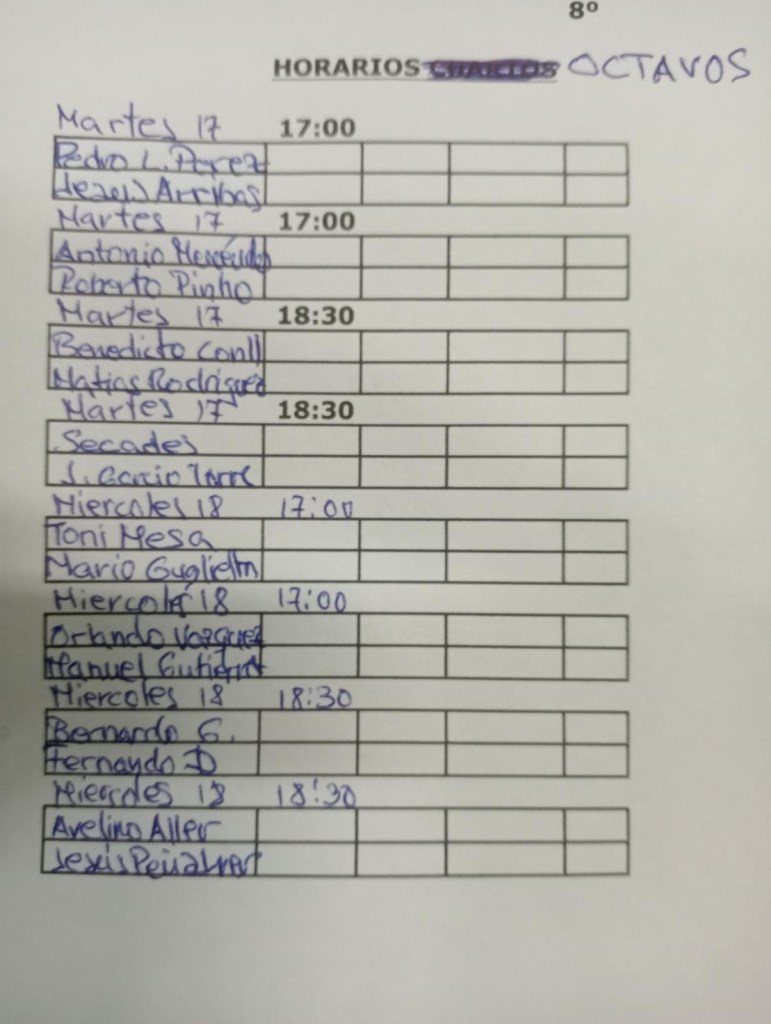 8º
HORARIOS OCTAVOS
Martes 17 17:00
Pedro L. Perez
Jesus Arribas
Martes 17 17:00
Antonio Menéndez
Roberto Pinho
Martes 17 18:30
Benedicto Conll
Matias Rodriguez
Martes 17 18:30
Secades
J. Garcia Torre
Miercoles 18 17:00
Toni Mesa
Mario Guglielm
Miercoles 18 17:00
Orlando Vazquez
Manuel
Miercoles 18 18:30
Bernardo G.
Fernando D
Miercoles 18 18:30
Avelino Aller
Jesús Peñalver